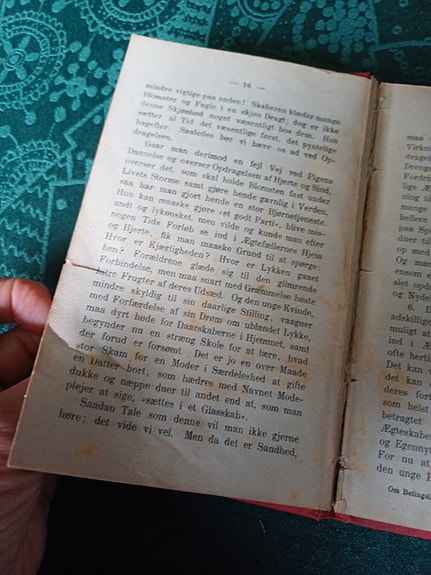 — 16 —
mindre vigtige paa anden! Skaberen klæder mange
Blomster og Fugle i en skjøn Dragt; dog er ikke
denne Skjønhed noget væsentligt hos dem. Han
sætter al Tid det væsentlige først, det pyntelige
bagefter. Saaledes bør vi bære os ad ved Op-
dragelsen.
Gaar man derimod en fejl Vej ved Pigens
Dannelse og overser Opdragelsen af Hjerte og Sind,
overser det, som skal holde Blomsten fast under
Livets Storme samt gjøre hende gavnlig i Verden,
saa har man gjort hende en stor Bjørnetjeneste.
Hun kan maaske gjøre »et godt Parti«, blive mis-
undt og lykønsket, men vilde og kunde man efter
nogen Tids Forløb se ind i Ægtefællernes Hjem
og Hjerte, fik man maaske Grund til at spørge:
Hvor er Kjærligheden? Hvor er Lykken gaaet
hen? Forældrene glæde sig til den glimrende
Forbindelse, men maa snart med Græmmelse høste
bitre Frugter af deres Udsæd. Og den unge Kvinde,
mindre skyldig til sin daarlige Stilling, vaagner
med Forfærdelse af sin Drøm om ublandet Lykke,
maa dyrt bøde for Daarskaberne i Hjemmet, samt
begynder nu en stræng Skole for at lære, hvad
der forud er forsømt. Det er jo en over Maade
stor Skam for en Moder i Særdeleshed at gifte
en Datter bort, som hædres med Navnet Mode-
dukke og næppe duer til andet end at, som man
plejer at sige, »sættes i et Glasskab«.
Saadan Tale som denne vil man ikke gjerne
høre; det vide vi vel. Men da det er Sandhed,
man
Virkni
det kan
det kan
deres fort
som helst
betragtet
Ægteskabe
og Egennyt
For nu at
den unge P
Om Betingel